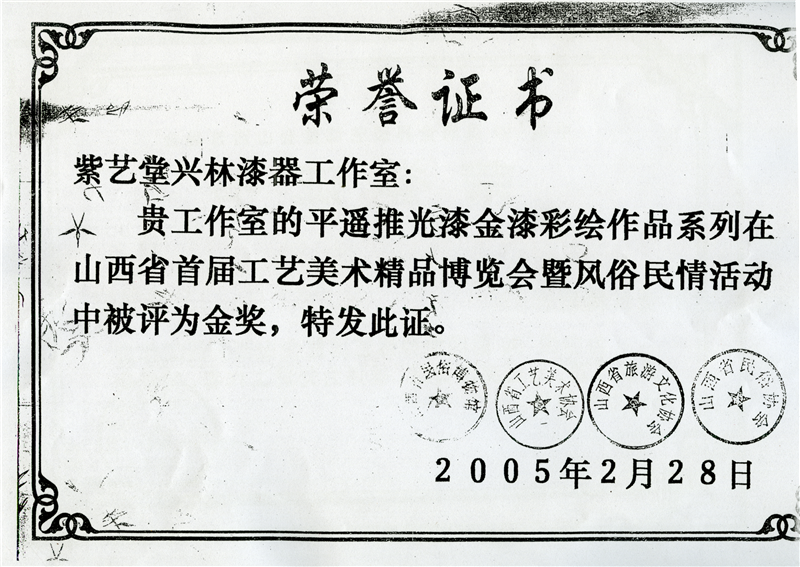 荣誉证书
紫艺堂兴林漆器工作室：
贵工作室的平遥推光漆金漆彩绘作品系列在
山西省首届工艺美术精品博览会暨风俗民情活动
中被评为金奖，特发此证。
山西省民俗博物馆
山西省工艺美术协会
山西省旅游文化协会
山西省民俗协会
2005年2月28日